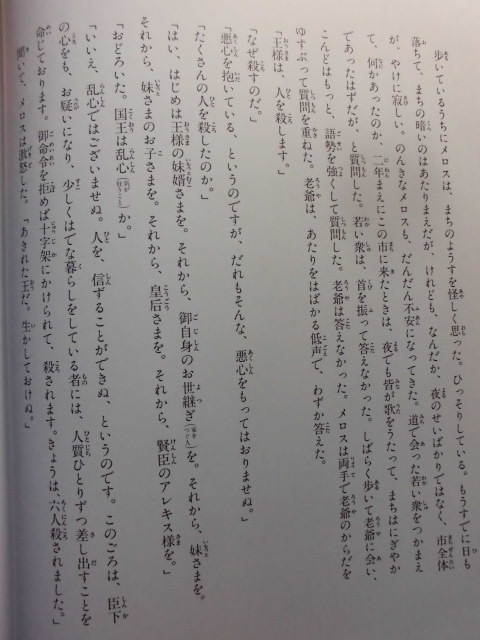 歩いているうちにメロスは、まちのようすを怪しく思った。ひっそりしている。もうすでに日も
落ちて、まちの暗いのはあたりまえだが、けれども、なんだか、夜のせいばかりではなく、市全体
が、やけに寂しい。のんきなメロスも、だんだん不安になってきた。道で会った若い衆をつかまえ
て、何かあったのか、二年まえにこの市に来たときは、夜でも皆が歌をうたって、まちはにぎやか
であったはずだが、と質問した。若い衆は、首を振って答えなかった。しばらく歩いて老爺に会い、
こんどはもっと、語勢を強くして質問した。老爺は答えなかった。メロスは両手で老爺のからだを
ゆすぶって質問を重ねた。老爺は、あたりをはばかる低声で、わずか答えた。
「王様は、人を殺します。」
「なぜ殺すのだ。」
「悪心を抱いている、というのですが、だれもそんな、悪心をもってはおりませぬ。」
「たくさんの人を殺したのか。」
「はい、はじめは王様の妹婿さまを。それから、御自身のお世継ぎを。それから、妹さまを。
それから、妹さまのお子さまを。それから、皇后さまを。それから、賢臣のアレキス様を。」
「おどろいた。国王は乱心か。」
「いいえ、乱心ではございませぬ。人を、信ずることができぬ、というのです。このごろは、臣下
の心をも、お疑いになり、少しくはでな暮らしをしている者には、人質ひとりずつ差し出すことを
命じております。御命令を拒めば十字架にかけられて、殺されます。きょうは、六人殺されました。」
聞いて、メロスは激怒した。「あきれた王だ。生かしておけぬ。」